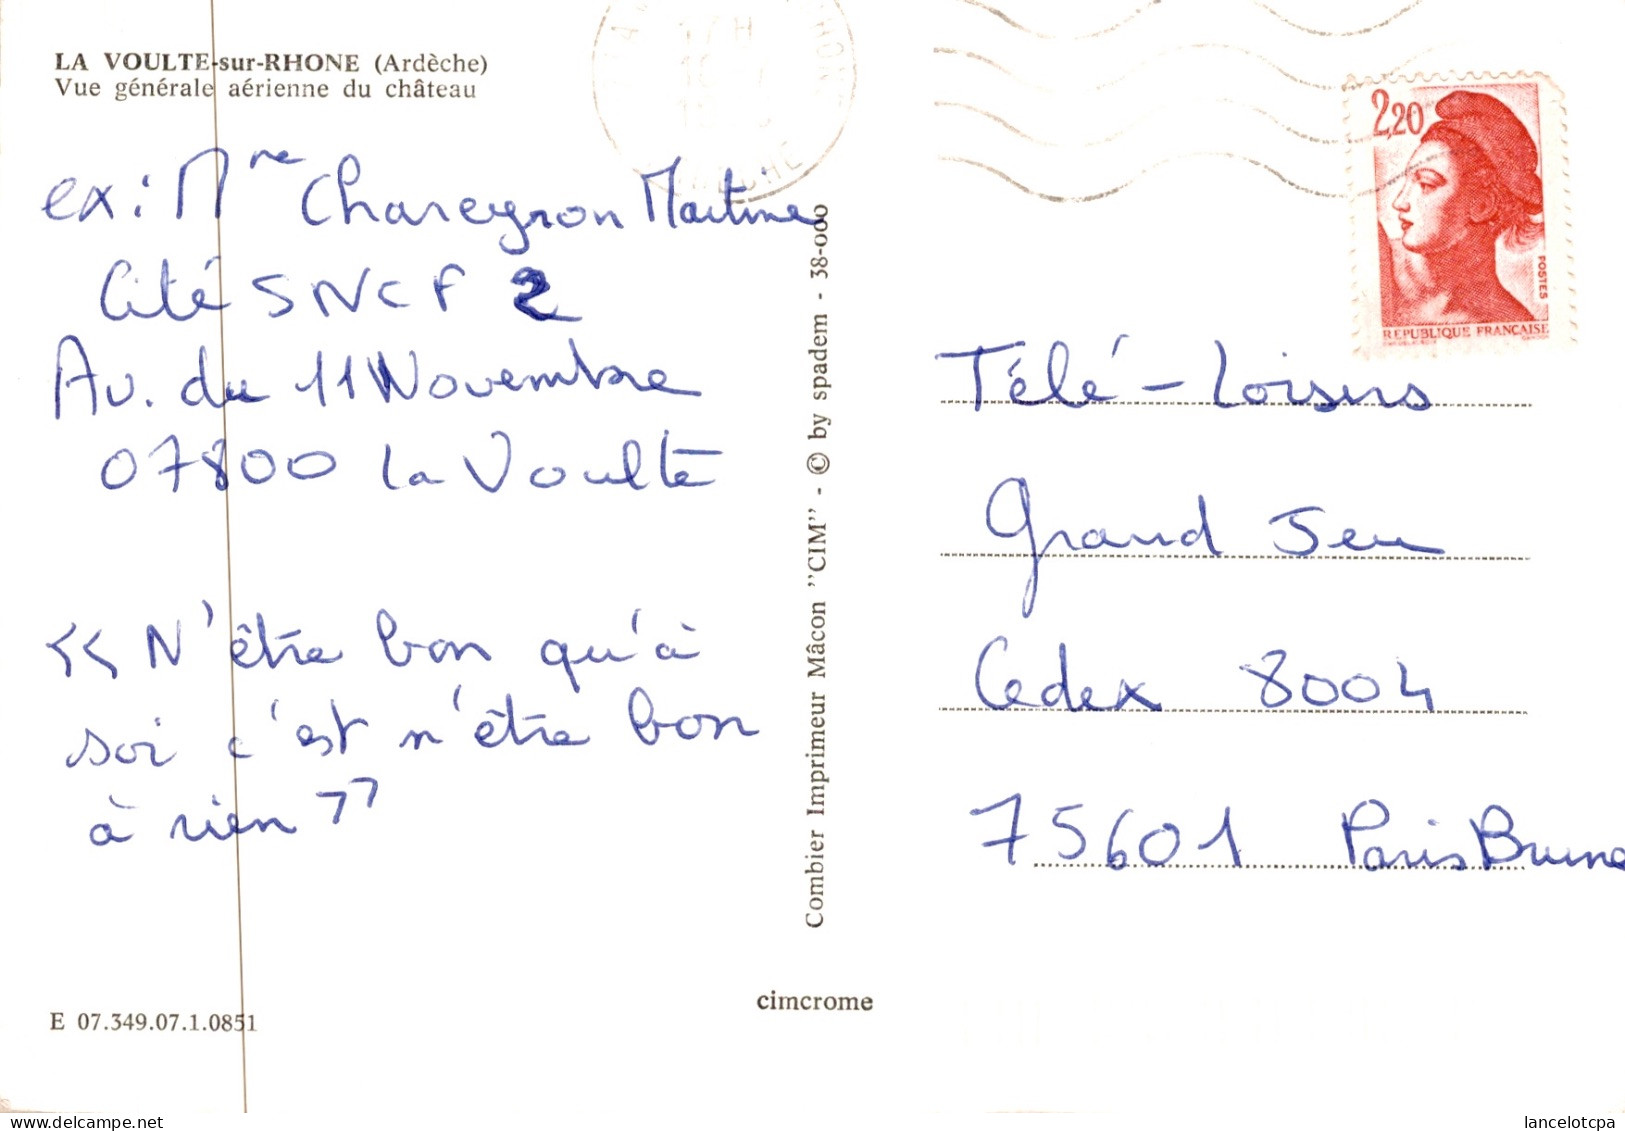 LA VOULTE-sur-RHONE (Ardèche)
Vue générale aérienne du château
ex: Mme Chareyron Martine
Cité SNCF 2
Av. du 11 Novembre
07800 La Voulte
<< N'être bon qu'à
soi c'est n'être bon
à rien >>
E 07.349.07.1.0851
Combier Imprimeur Mâcon "CIM" - © by spadem - 38-000
cimcrome
2,20
POSTES
REPUBLIQUE FRANÇAISE
Télé-Loisirs
Grand Jeu
Cedex 8004
75601 Paris Brune
lancelotcpa